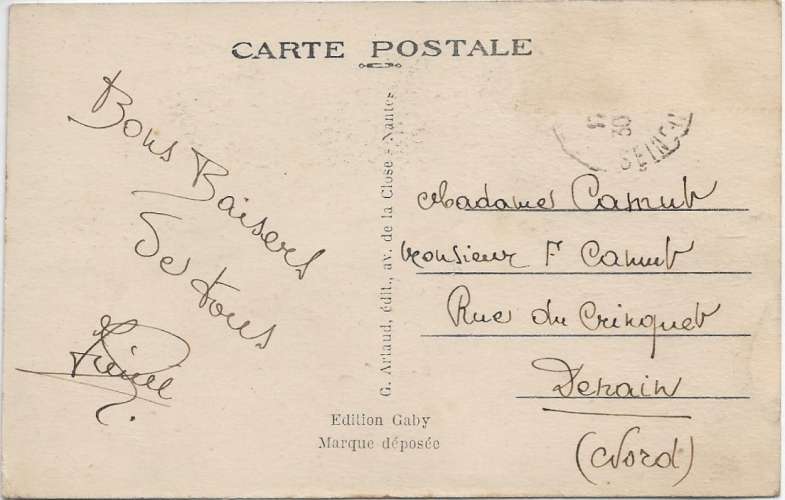 CARTE POSTALE
Bons Baisers
de tous
G. Artaud, édit., av. de la Close - Nantes
Edition Gaby
Marque déposée
30
Madame Camut
Monsieur F Camut
Rue du Crinquet
Denain
(Nord)